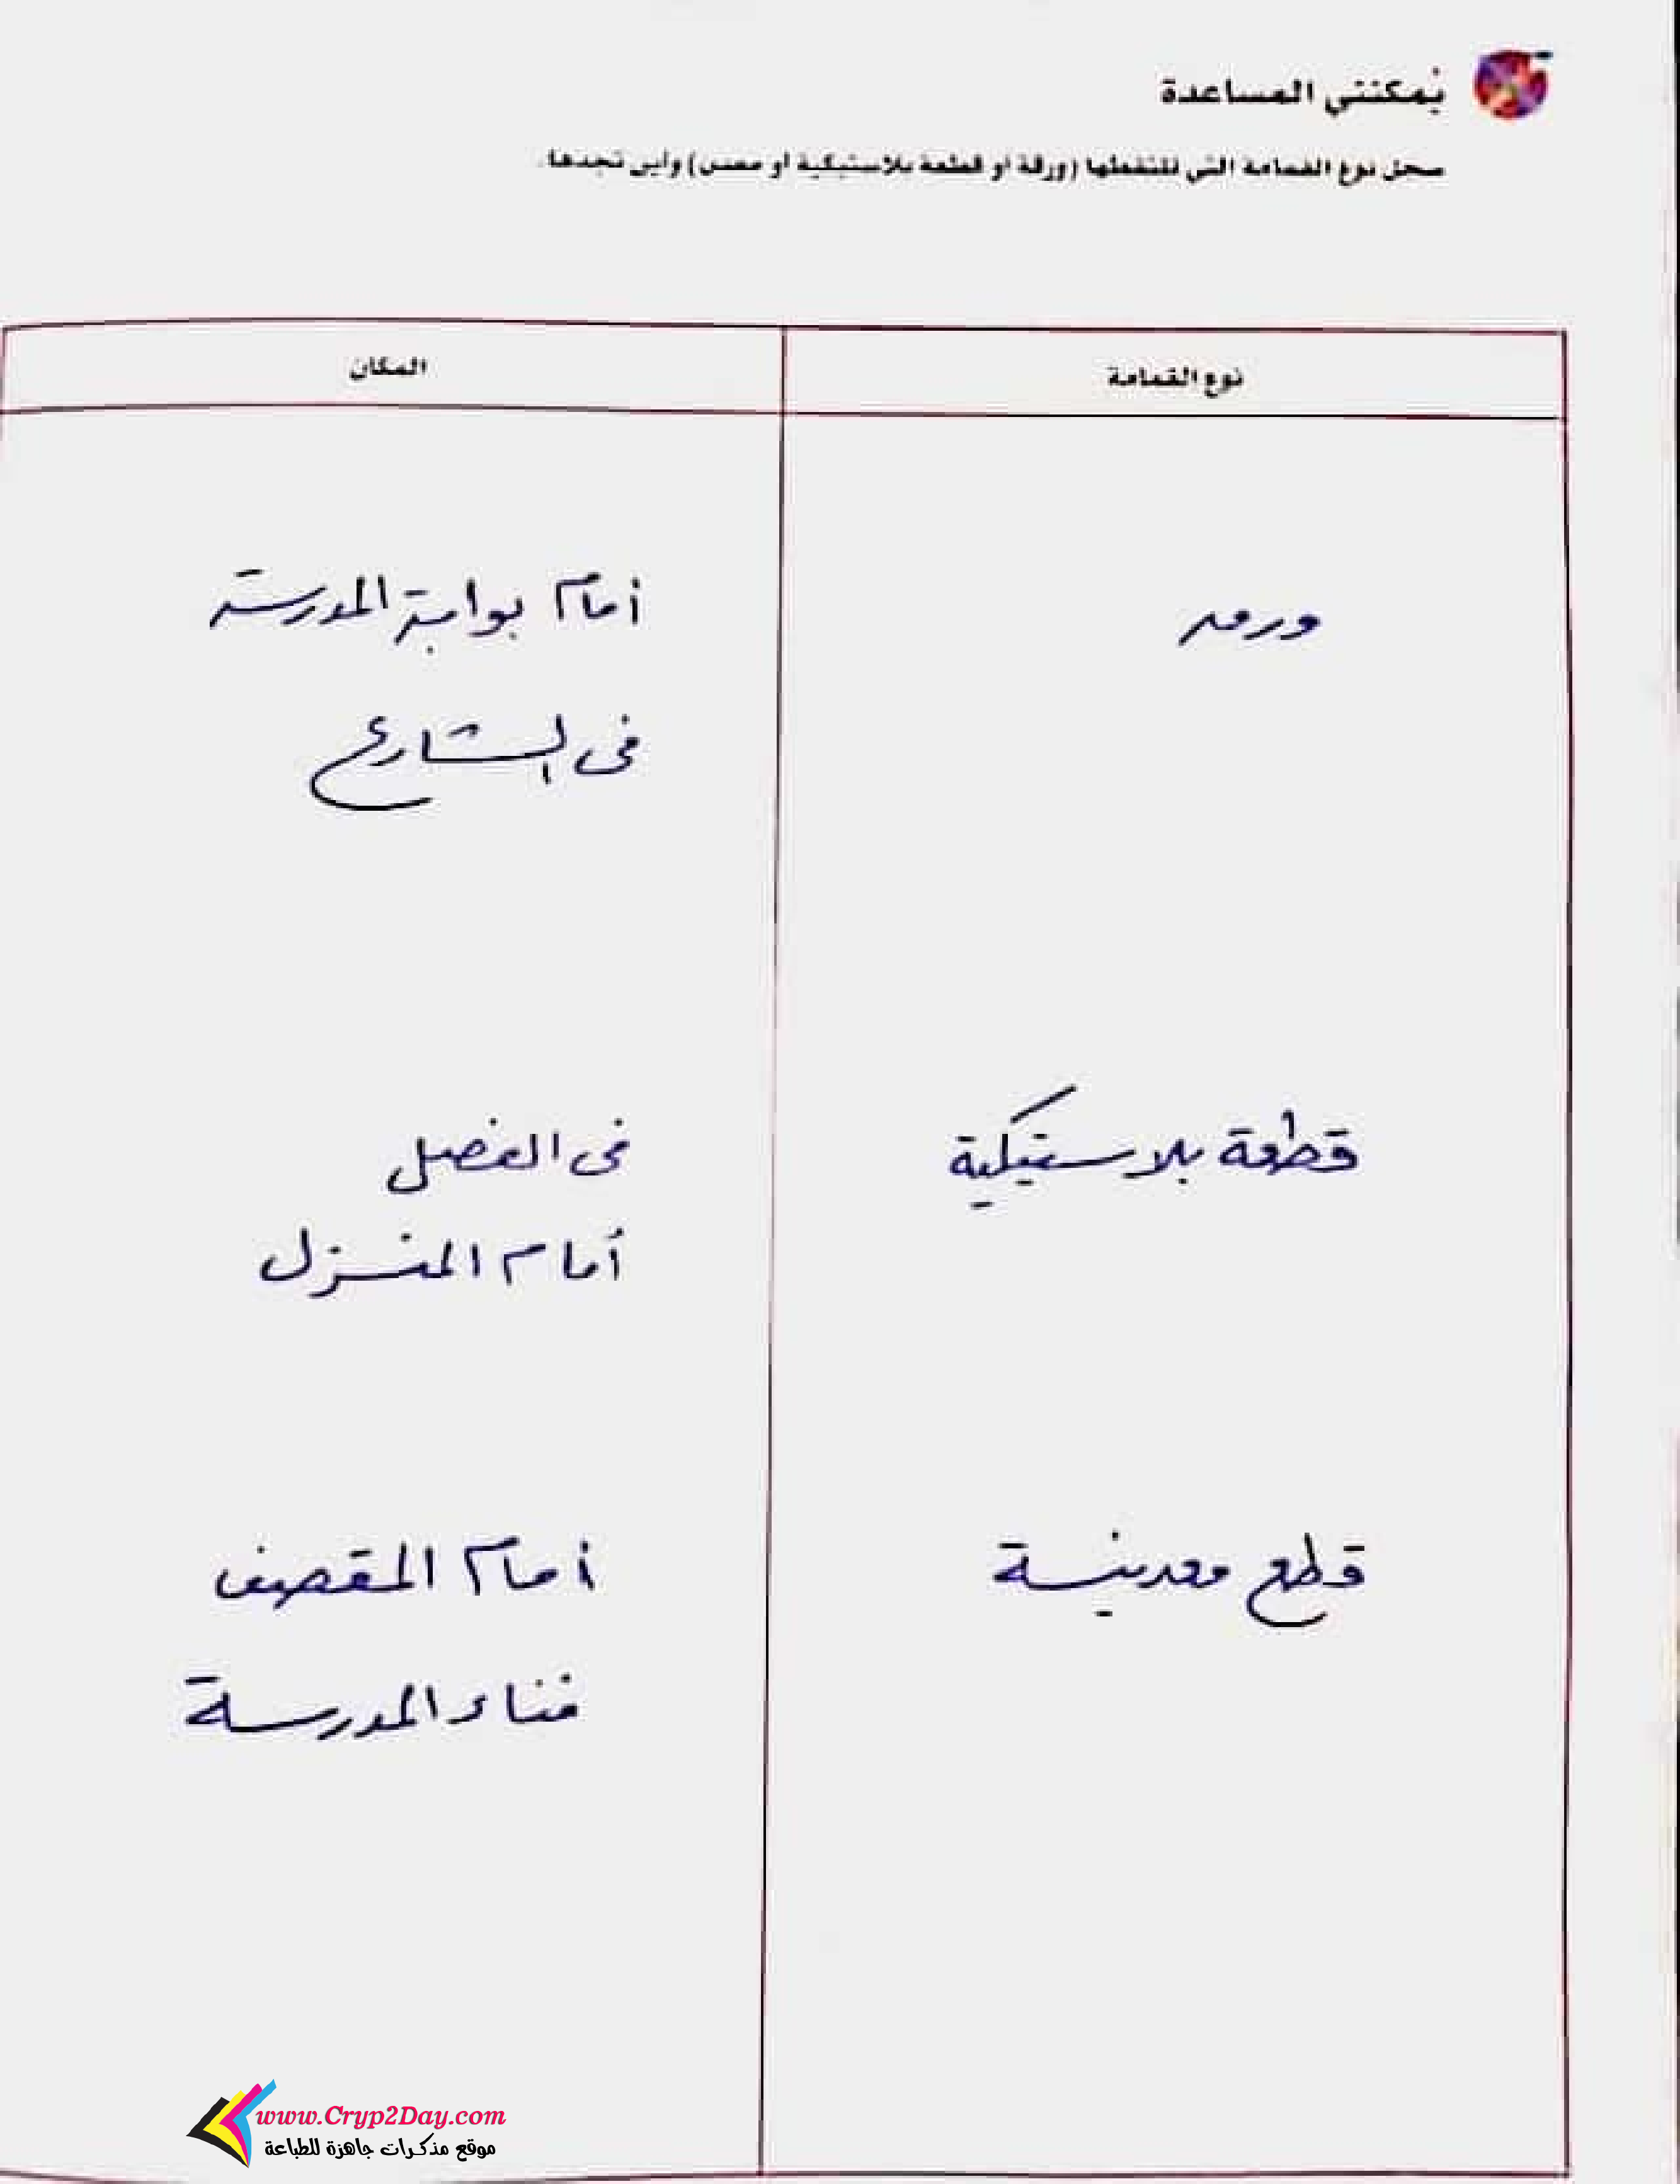 يُمكنني المساعدة
سجل نوع القمامة التي تلتقطها (ورقة أو قطعة بلاستيكية أو معدن) وأين تجدها.
نوع القمامة
المكان
ورق
أمام بوابة المدرسة
فى الشارع
قطعة بلاستيكية
فى الفصل
أمام المنزل
قطع معدنية
أمام المقصف
فناء المدرسة
www.Cryp2Day.com
موقع مذكرات جاهزة للطباعة